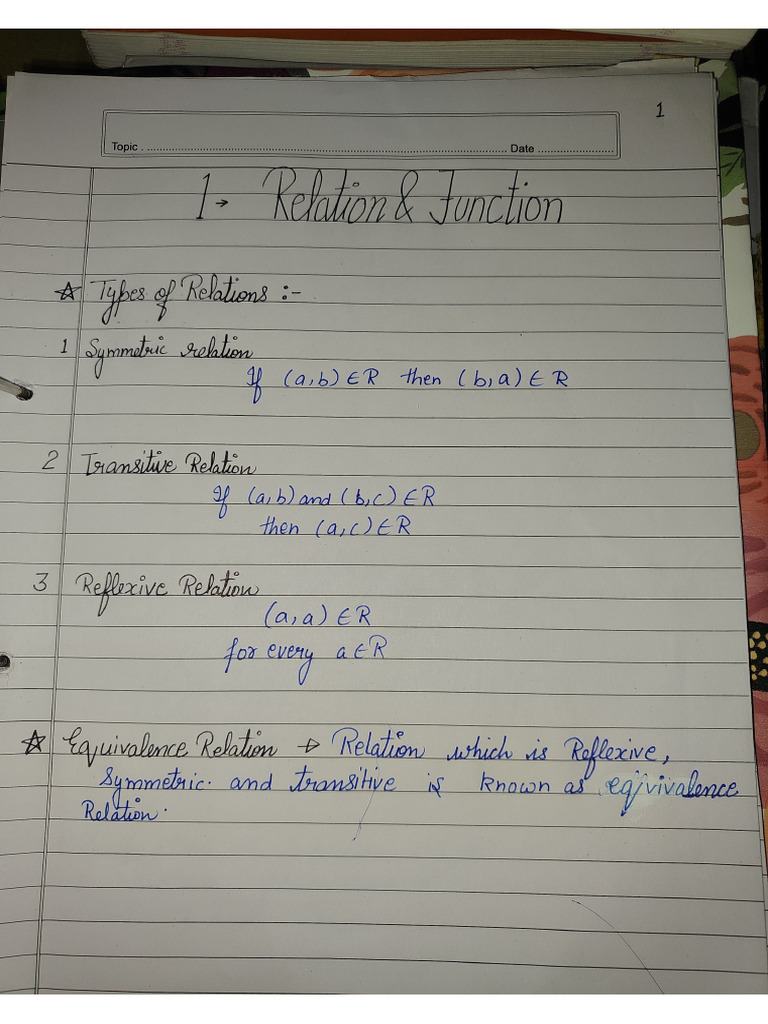 1
Topic . ................................................................ Date ........................
1→ Relation & Function
☆ Types of Relations :-
1 Symmetric relation
If (a,b) ∈ R then (b,a) ∈ R
2 Transitive Relation
If (a,b) and (b,c) ∈ R
then (a,c) ∈ R
3 Reflexive Relation
(a,a) ∈ R
for every a ∈ R
☆ Equivalence Relation → Relation which is Reflexive,
Symmetric. and transitive is known as eqivivalence
Relation.